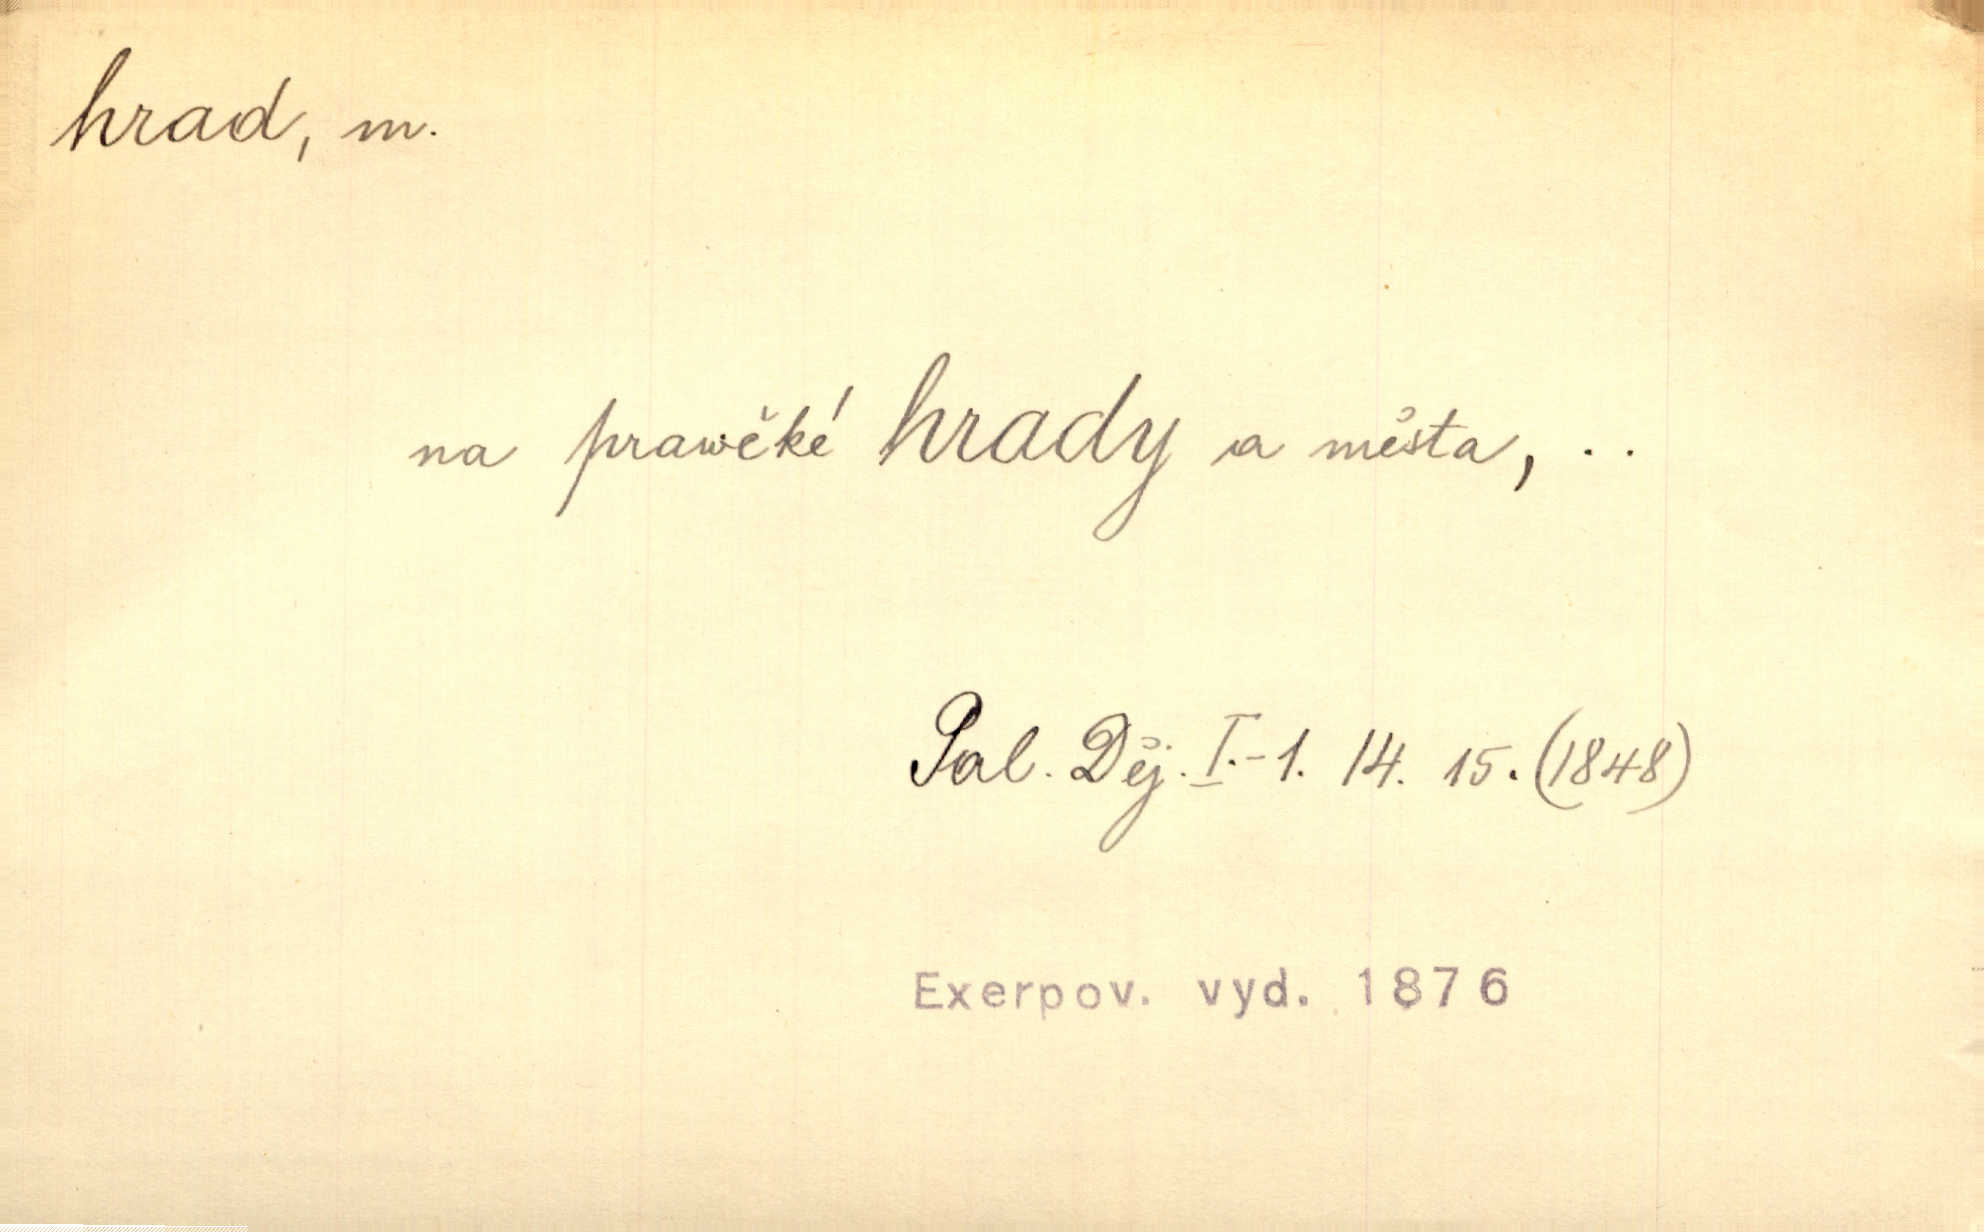 hrad, m.
na prawěké hrady a města, ..
Pal. Děj. I.-1. 14. 15. (1848)
Exerpov. vyd. 1876